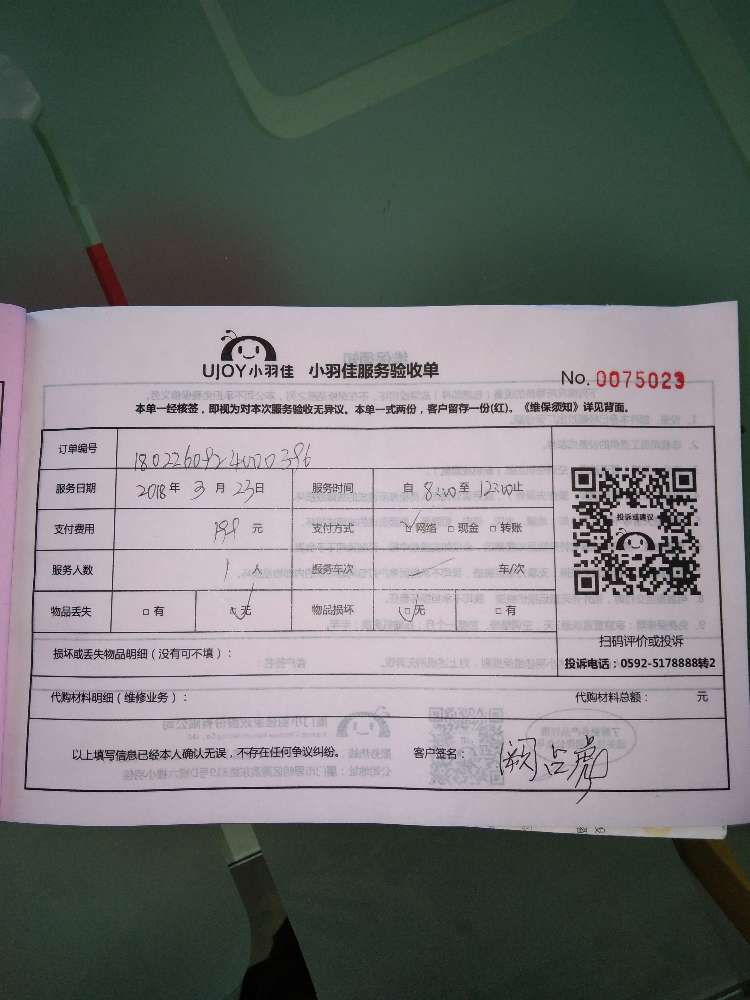 UJOY小羽佳 小羽佳服务验收单
No. 0075023
本单一经核签，即视为对本次服务验收无异议。本单一式两份，客户留存一份(红)。《维保须知》详见背面。
订单编号 1802260924000396
服务日期 2018年 3月 23日 服务时间 自 8:00至 12:00止
支付费用 元 支付方式 网络 现金 转账
服务人数 1 人 服务车次 车/次
物品丢失 有 无 物品损坏 无 有
投诉或建议
扫码评价或投诉
投诉电话：0592-5178888转2
损坏或丢失物品明细（没有可不填）：
代购材料明细（维修业务）： 代购材料总额： 元
以上填写信息已经本人确认无误，不存在任何争议纠纷。 客户签名： 阙占彪